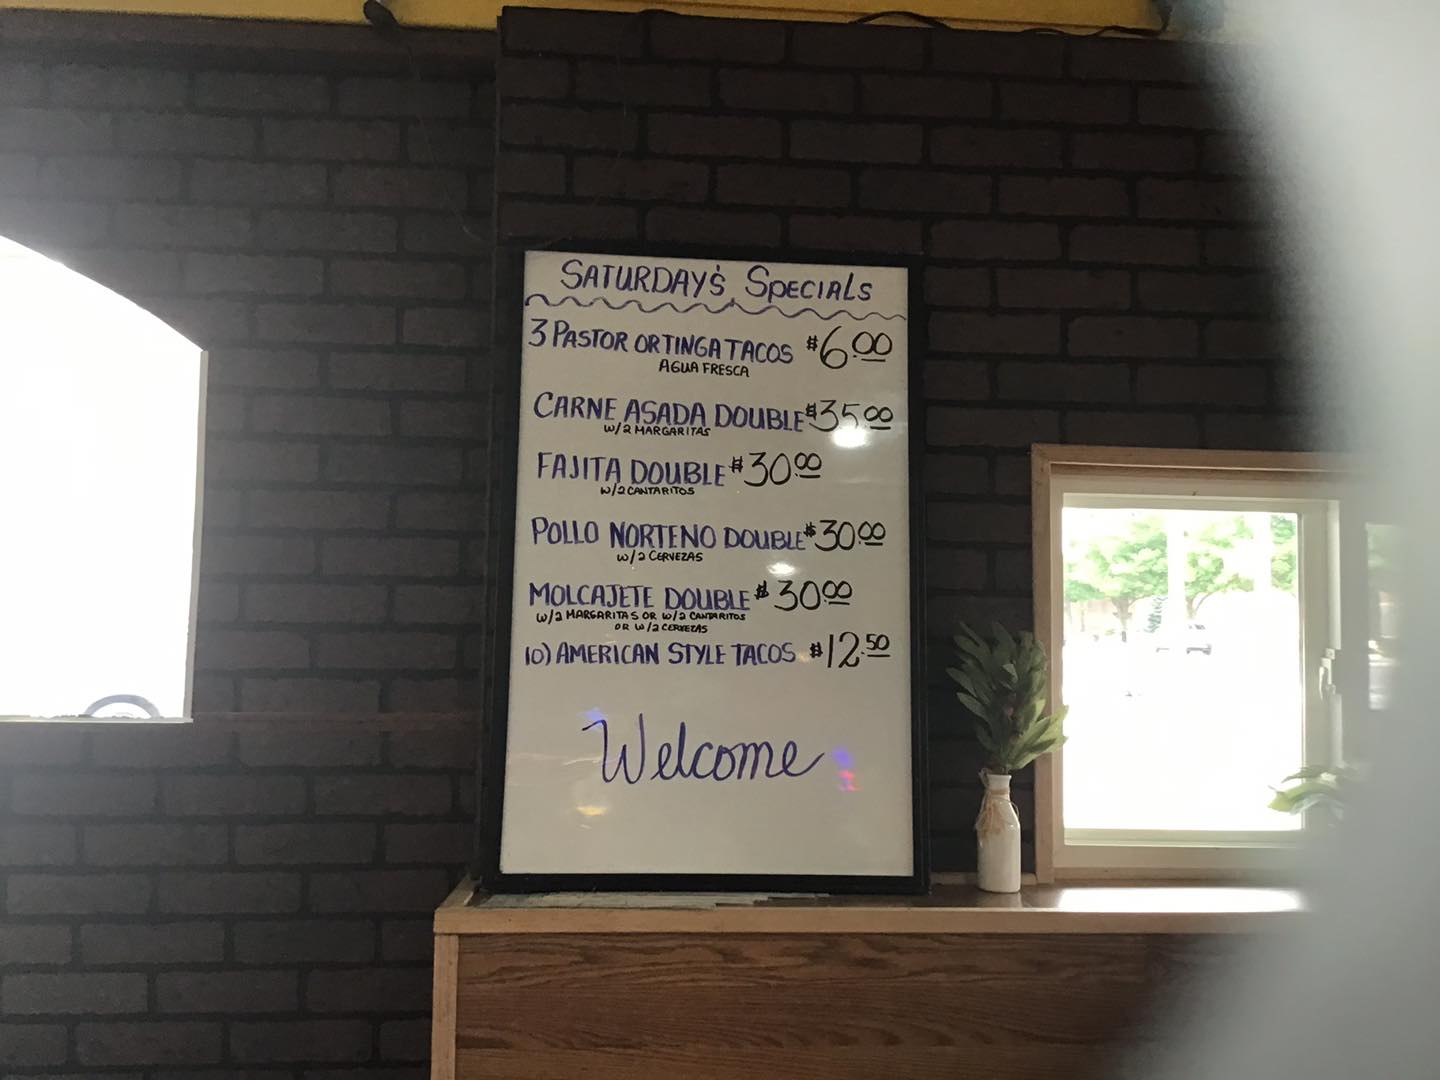 SATURDAY'S SPECIALS
3 PASTOR ORTINGA TACOS $6.00
AGUA FRESCA
CARNE ASADA DOUBLE $35.00
W/2 MARGARITAS
FAJITA DOUBLE $30.00
W/2 CANTARITOS
POLLO NORTENO DOUBLE $30.00
W/2 CERVEZAS
MOLCAJETE DOUBLE $30.00
W/2 MARGARITAS OR W/2 CANTARITOS
OR W/2 CERVEZAS
10) AMERICAN STYLE TACOS $12.50
Welcome